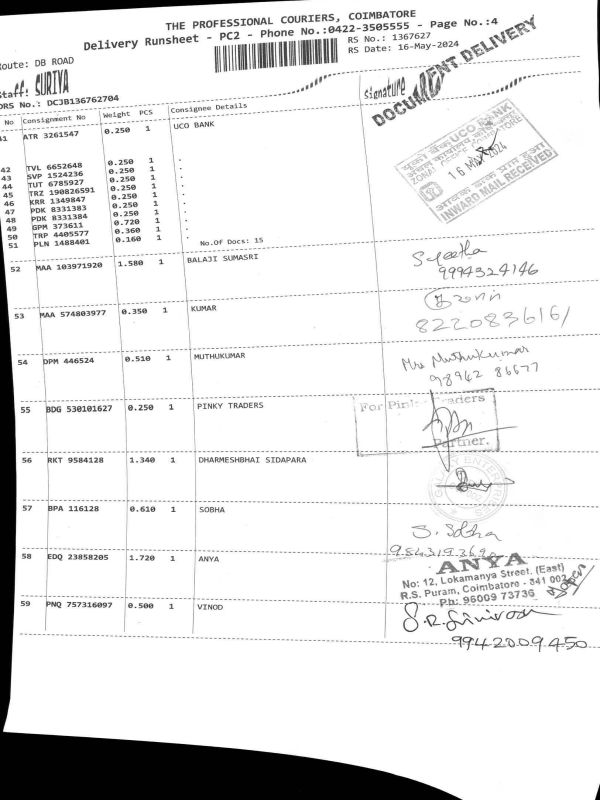 THE PROFESSIONAL COURIERS, COIMBATORE
Delivery Runsheet - PC2 - Phone No.:0422-3505555 - Page No.:4
Route: DB ROAD
RS No.: 1367627
RS Date: 16-May-2024
Staff: SURIYA
signature
DOCUMENT DELIVERY
DRS No.: DCJB136762704
No Consignment No Weight PCS Consignee Details
41 ATR 3261547 0.250 1 UCO BANK
UCO BANK
ZONAL OFFICE
16 MAY 2024
INWARD MAIL RECEIVED
42 TVL 6652648 0.250 1 .
43 SVP 1524236 0.250 1 .
44 TUT 6785927 0.250 1 .
45 TRZ 190826591 0.250 1 .
46 KRR 1349847 0.250 1 .
47 PDK 8331383 0.250 1 .
48 PDK 8331384 0.250 1 .
49 GPM 373611 0.720 1 .
50 TRP 4405577 0.360 1 .
51 PLN 1488401 0.160 1 .
No.Of Docs: 15
52 MAA 103971920 1.580 1 BALAJI SUMASRI
9994324146
53 MAA 574803977 0.350 1 KUMAR
822083616/
54 DPM 446524 0.510 1 MUTHUKUMAR
Muthukumar
98942 86677
55 BDG 530101627 0.250 1 PINKY TRADERS
For Pinky Traders
Partner.
56 RKT 9584128 1.340 1 DHARMESHBHAI SIDAPARA
57 BPA 116128 0.610 1 SOBHA
S. Sobha
58 EDQ 23858205 1.720 1 ANYA
ANYA
No: 12, Lokamanya Street, (East)
R.S. Puram, Coimbatore - 641 002
Ph: 96009 73736
59 PNQ 757316097 0.500 1 VINOD
9942009450